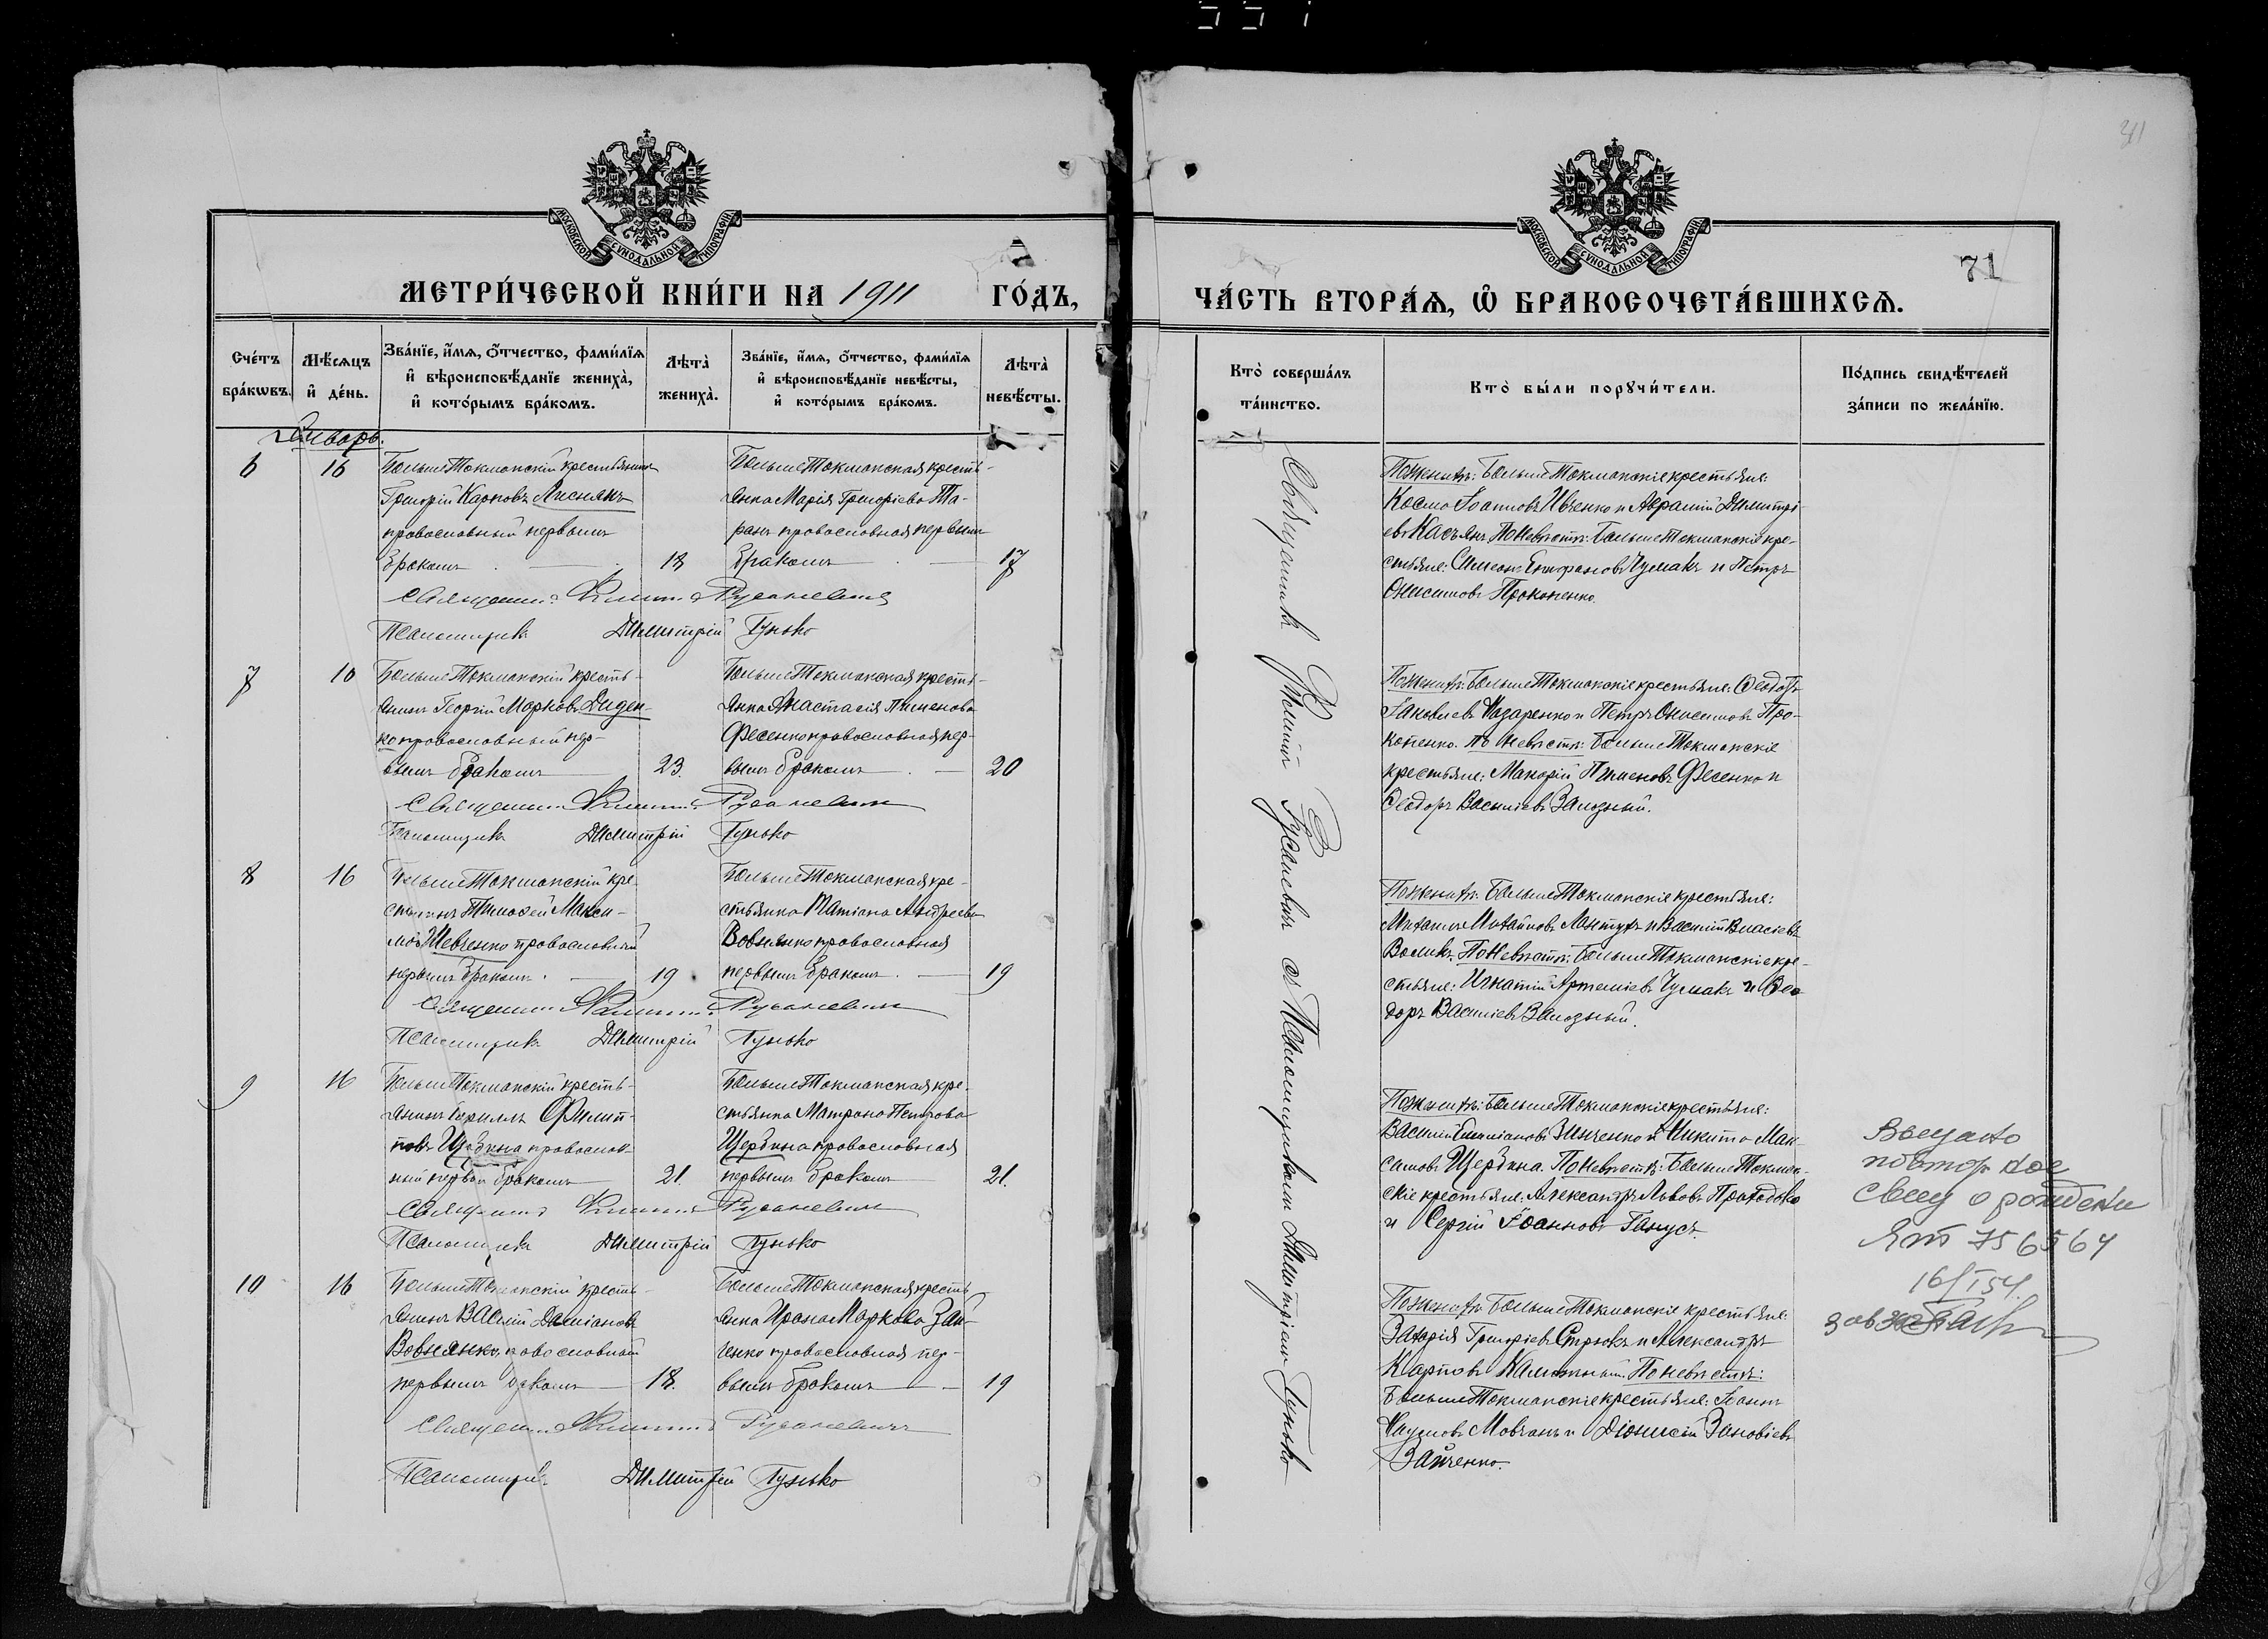 551
МОСКОВСКОЙ СУНОДАЛЬНОЙ ТИПОГРАФІИ
МЕТРИ́ЧЕСКОЙ КНИ́ГИ НА 1911 ГО́ДЪ,
Сче́тъ бра́кωвъ.
Мѣ́сяцъ и҆ де́нь.
Зва́нїе, и҆́мя, ѻ҆́тчество, фами́лїя и҆ вѣроисповѣ́данїе жениха̀, и҆ кото́рымъ бра́комъ.
Лѣта̀ жениха̀.
Зва́нїе, и҆́мя, ѻ҆́тчество, фами́лїя и҆ вѣроисповѣ́данїе невѣ́сты, и҆ кото́рымъ бра́комъ.
Лѣта̀ невѣ́сты.
Январь.
6
16
Больше Токмакскій крестьянинъ
Григорій Карповъ Лиснякъ
православный первымъ
бракомъ
18
Больше Токмакская кресть-
янка Марія Григоріева Та-
ранъ православная первымъ
бракомъ
17
Священникъ Филиппъ Русаневичъ
Псаломщикъ Димитрій Гунько
7
16
Больше Токмакскій кресть-
янинъ Георгій Марковъ Диден-
ко православный пер-
вымъ бракомъ
23.
Больше Токмакская кресть-
янка Анастасія Пименова
Фесенко православная пер-
вымъ бракомъ
20
Священникъ Филиппъ Русаневичъ
Псаломщикъ Димитрій Гунько
8
16
Больше Токмакскій кре-
стьянинъ Тимоѳей Макси-
мовъ Шевченко православный
первымъ бракомъ.
19
Больше Токмакская кре-
стьянка Татіана Андреева
Вовнянко православная
первымъ бракомъ.
19
Священникъ Филиппъ Русаневичъ
Псаломщикъ Димитрій Гунько
9
16
Больше Токмакскій кресть-
янинъ Кириллъ Филип-
повъ Щербина православ-
ный первымъ бракомъ
21.
Больше Токмакская кре-
стьянка Матрона Петрова
Щербина православная
первымъ бракомъ
21.
Священникъ Филиппъ Русаневичъ
Псаломщикъ Димитрій Гунько
10
16
Больше Токмакскій кресть-
янинъ Василій Даміановъ
Вовнянко православный
первымъ бракомъ
18.
Больше Токмакская кресть-
янка Ирина Маркова Зай-
ченко православная пер-
вымъ бракомъ
19
Священникъ Филиппъ Русаневичъ
Псаломщикъ Димитрій Гунько
МОСКОВСКОЙ СУНОДАЛЬНОЙ ТИПОГРАФІИ
71
ЧА́СТЬ ВТОРА́Я, Ѽ БРАКОСОЧЕТА́ВШИХСЯ.
Кто̀ соверша́лъ та́инство.
Кто̀ бы́ли порꙋчи́тели.
По́дпись свидѣ́телей за́писи по жела́нїю.
Священникъ Филиппъ Русаневичъ съ Псаломщикомъ Димитріемъ Гунько
По женихѣ: Больше Токмакскіе крестьяне:
Косма Іоанновъ Ивченко и Авраамій Димитрі-
евъ Касьянъ. По невѣстѣ: Больше Токмакскіе кре-
стьяне: Симеонъ Епифановъ Чумакъ и Петръ
Онисимовъ Прокопенко.
По женихѣ: Больше Токмакскіе крестьяне: Ѳеодотъ
Іаковлевъ Назаренко и Петръ Онисимовъ Про-
копенко. По невѣстѣ: Больше Токмакскіе
крестьяне: Макарій Пименовъ Фесенко и
Ѳеодоръ Василіевъ Зализный.
По женихѣ: Больше Токмакскіе крестьяне:
Михаилъ Михайловъ Лантухъ и Василій Власіевъ
Воликъ. По невѣстѣ: Больше Токмакскіе кре-
стьяне: Игнатій Артеміевъ Чумакъ и Ѳео-
доръ Василіевъ Зализный.
По женихѣ: Больше Токмакскіе крестьяне:
Василій Зинченко и Никита Мак-
симовъ Щербина. По невѣстѣ: Больше Токмак-
скіе крестьяне: Александръ Львовъ Проходько
и Сергій Іоанновъ Ганусъ.
По женихѣ: Больше Токмакскіе крестьяне:
Захарія Григоріевъ Стрюкъ и Александръ
Карповъ Калюжный. По невѣстѣ:
Больше Токмакскіе крестьяне: Іоаннъ
Наумовъ Мовчанъ и Діонисій Зиновіевъ
Зайченко.
Выдано
повтор ное
свид о рождении
ЯТ 756564
16/I 54.